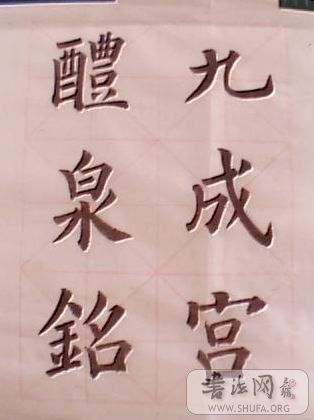 九成宮
醴泉銘
书法网
WWW.SHUFA.ORG